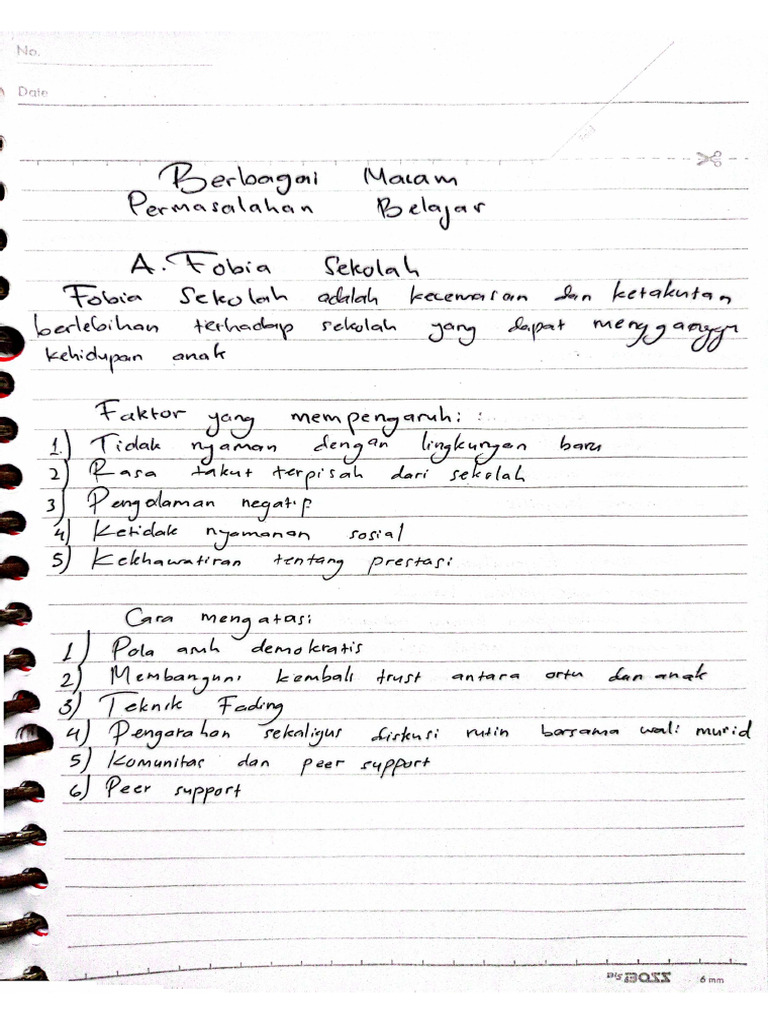 No.
Date
Berbagai Macam
Permasalahan Belajar
A. Fobia Sekolah
Fobia Sekolah adalah kecemasan dan ketakutan
berlebihan terhadap sekolah yang dapat mengganggu
kehidupan anak
Faktor yang mempengaruhi :
1.) Tidak nyaman dengan lingkungan baru
2) Rasa takut terpisah dari sekolah
3) Pengalaman negatif
4) Ketidak nyamanan sosial
5) Kekhawatiran tentang prestasi
Cara mengatasi
1) Pola asuh demokratis
2) Membanguni kembali trust antara ortu dan anak
3) Teknik Fading
4) Pengarahan sekaligus diskusi rutin bersama wali murid
5) Komunitas dan peer support
6) Peer support
BOSS 6 mm